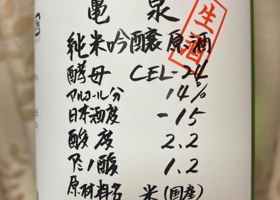 亀泉
生酒
純米吟醸原酒
酵母 CEL-24
アルコール分 14%
日本酒度 -15
酸度 2.2
アミノ酸 1.2
原材料名 米(国産)